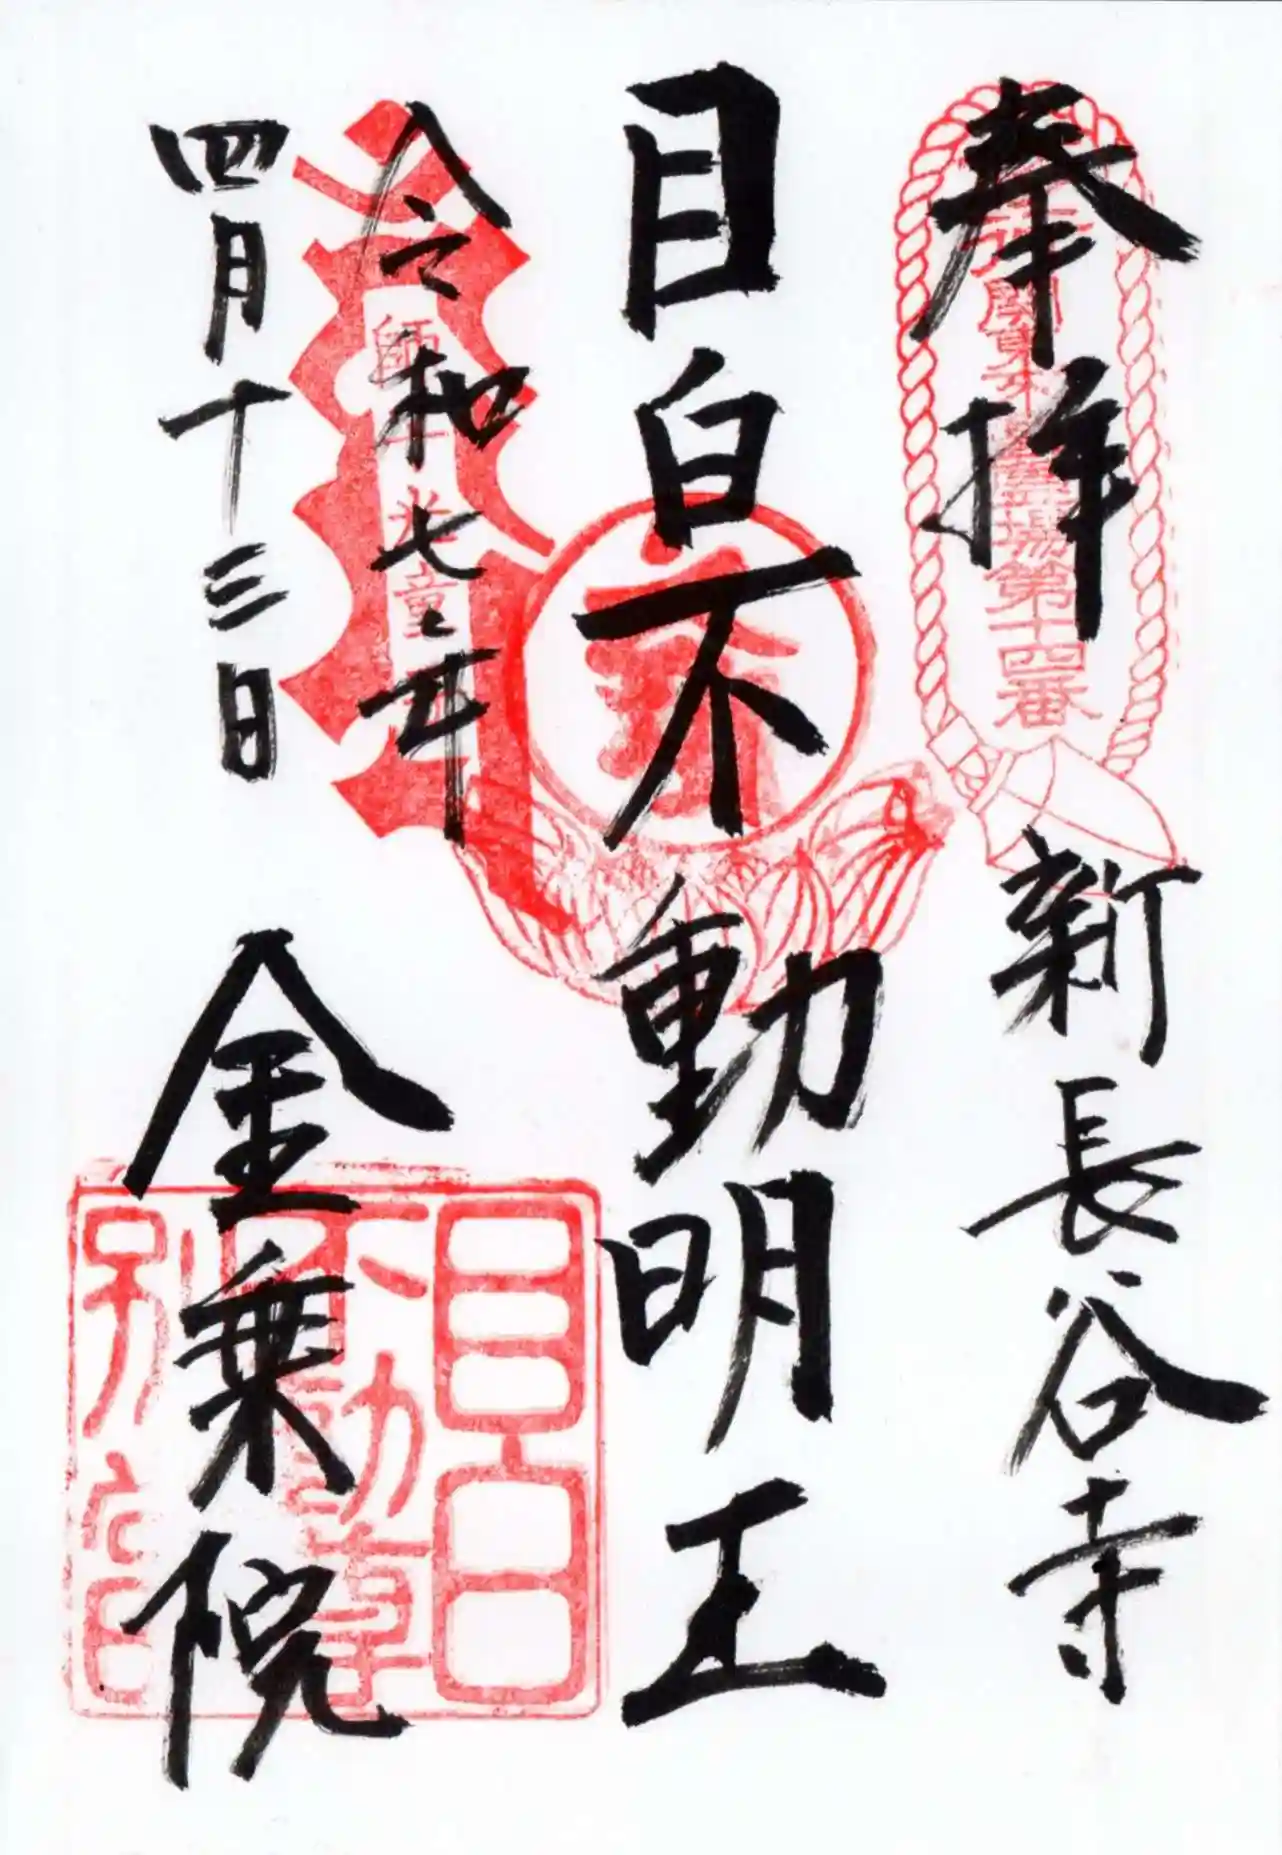 奉拝 新長谷寺
関東不動霊場第十四番
目白不動明王
令和七年
四月十三日
金乗院
目白
不動尊
別當